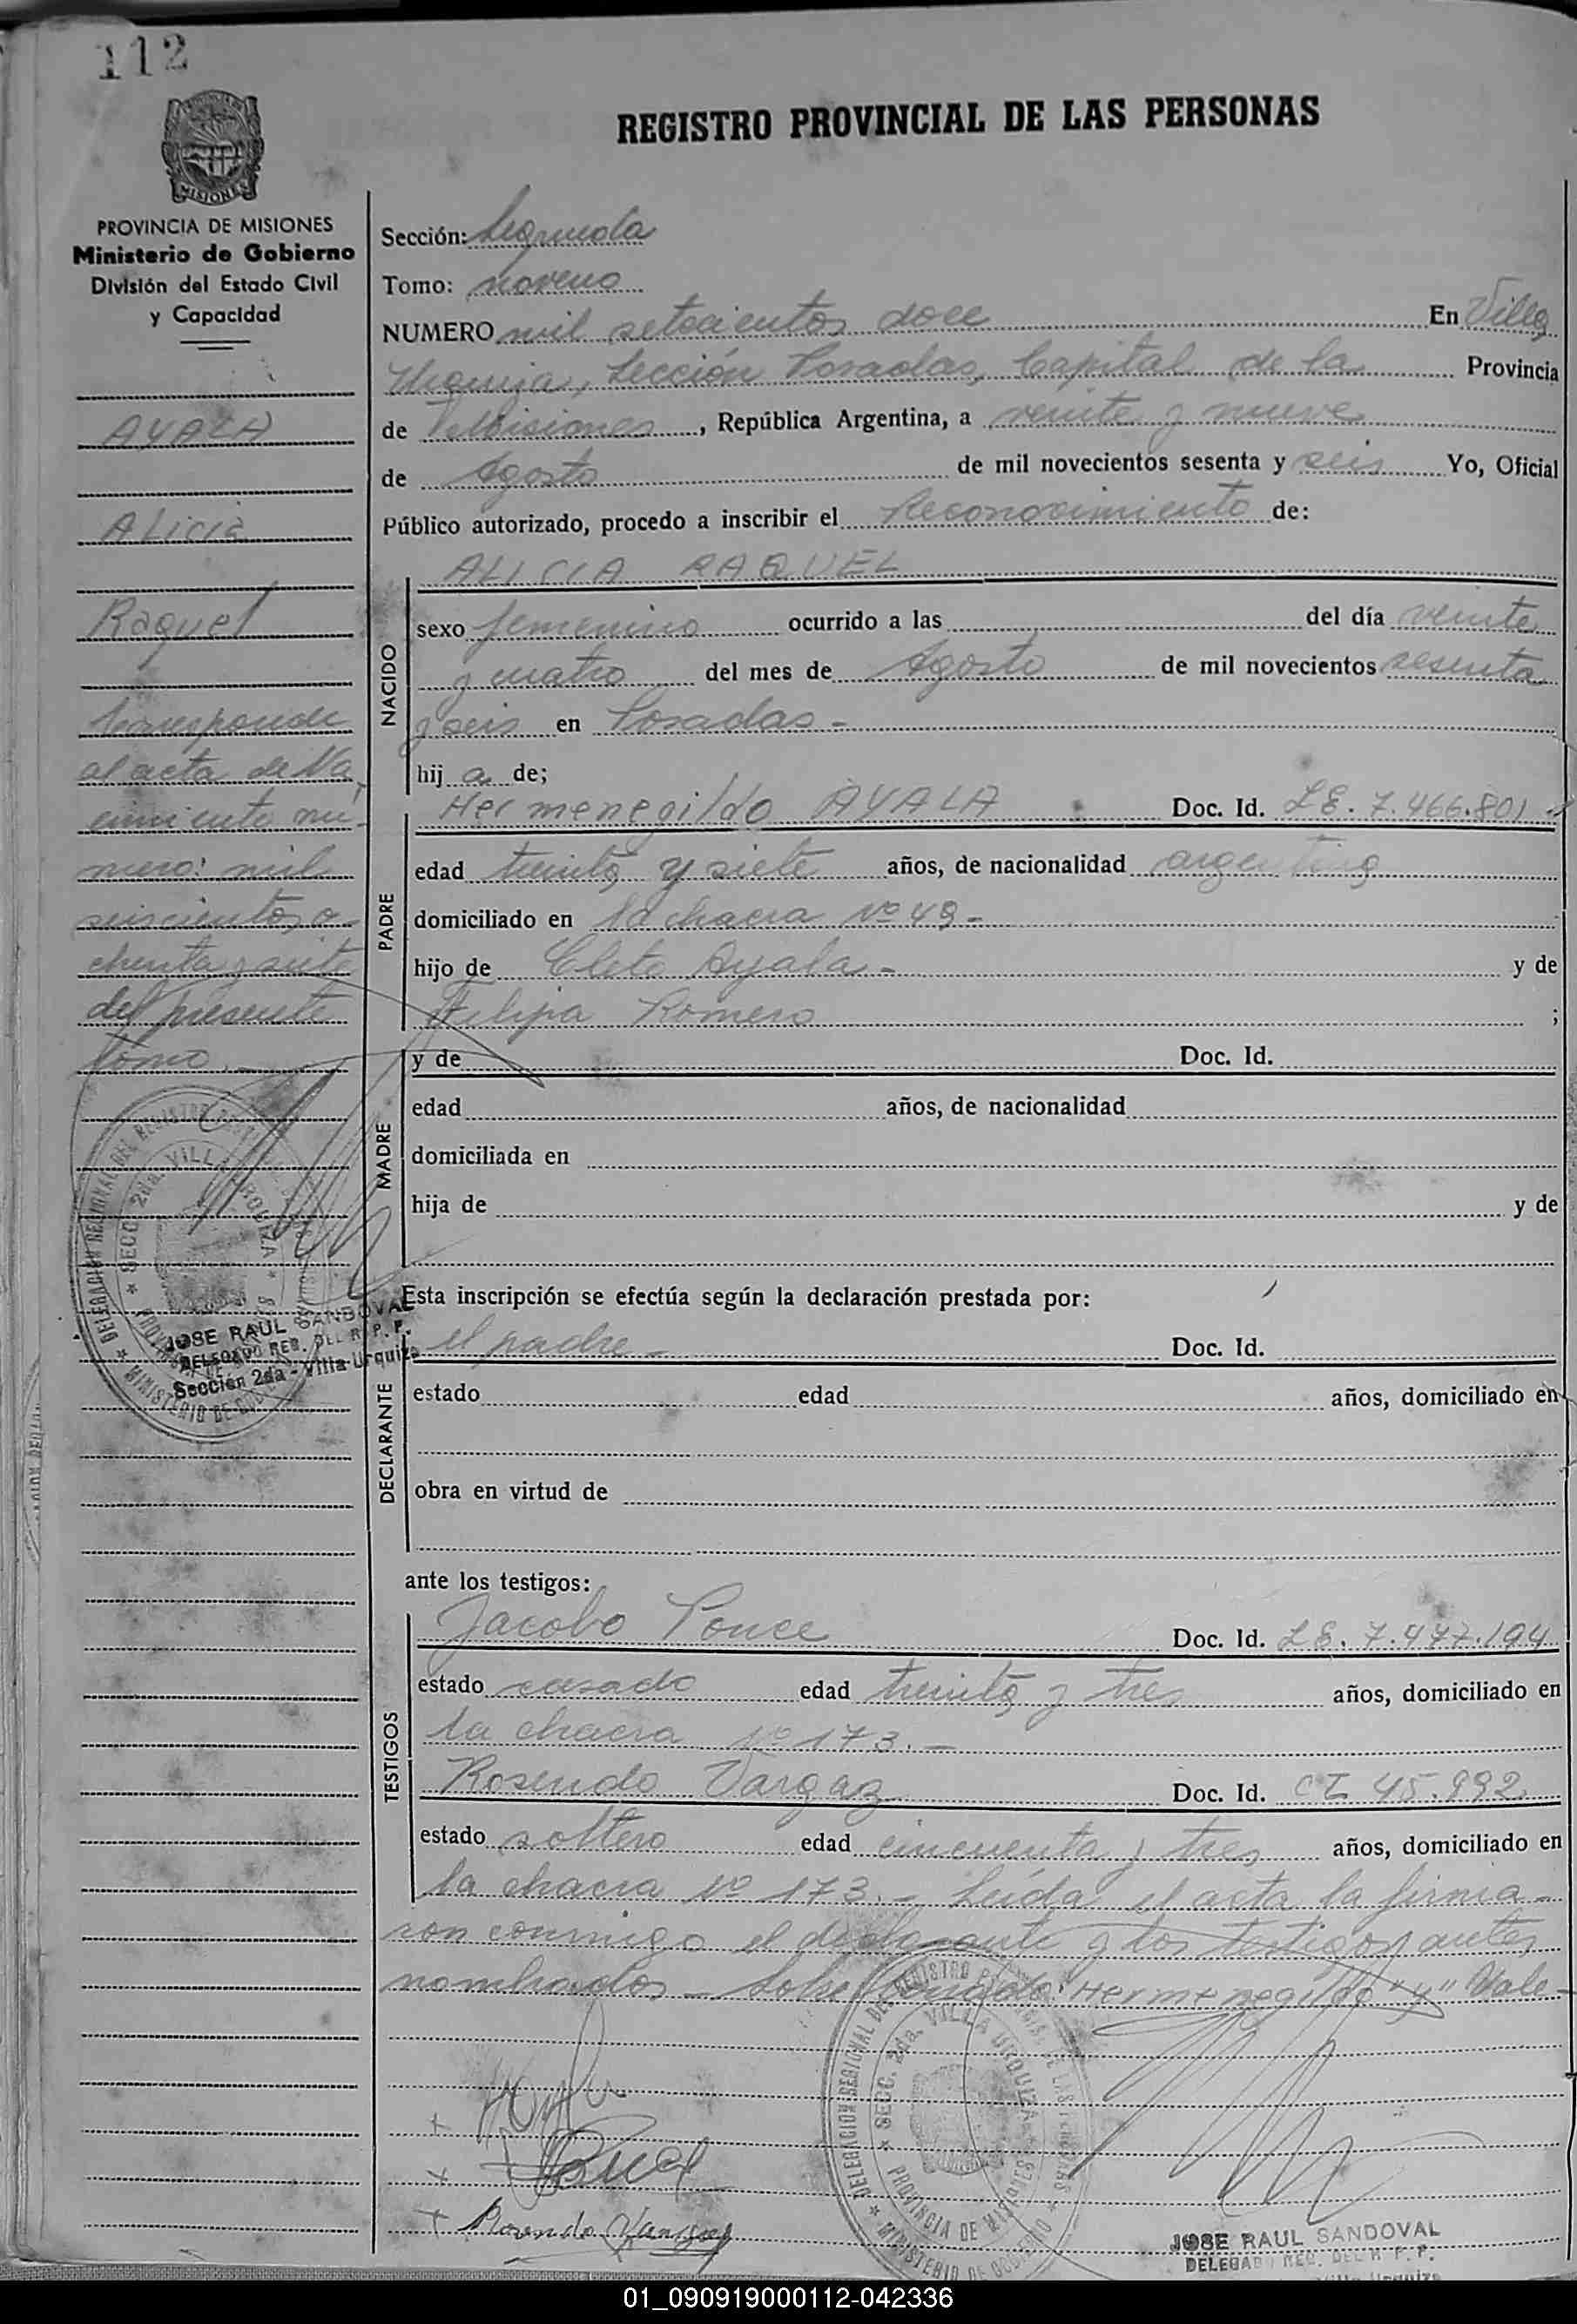 112
REGISTRO PROVINCIAL DE LAS PERSONAS
MISIONES
PROVINCIA DE MISIONES
Ministerio de Gobierno
División del Estado Civil
y Capacidad
AYALA
Alicia
Raquel
Corresponde
al acta de Na
cimiento nú-
mero: mil
seiscientos o
chenta y siete
del presente
tomo.-
JOSE RAUL SANDOVAL
DELEGADO REG. DEL R. P. P.
Sección 2da - Villa Urquiza
Sección: Segunda
Tomo: noveno
NUMERO mil setecientos doce En Villa
Urquiza, Sección Posadas, Capital de la Provincia
de Misiones, República Argentina, a veinte y nueve
de Agosto de mil novecientos sesenta y seis Yo, Oficial
Público autorizado, procedo a inscribir el Reconocimiento de:
ALICIA RAQUEL
NACIDO
sexo femenino ocurrido a las del día veinte
y cuatro del mes de Agosto de mil novecientos sesenta
y seis en Posadas.-
hij a de;
PADRE
Hermenegildo AYALA Doc. Id. LE. 7.466.801
edad treinta y siete años, de nacionalidad argentina
domiciliado en la chacra Nº 49-
hijo de Cleto Ayala - y de
Felipa Romero ;
MADRE
y de Doc. Id.
edad años, de nacionalidad
domiciliada en
hija de y de
Esta inscripción se efectúa según la declaración prestada por:
DECLARANTE
el padre - Doc. Id.
estado edad años, domiciliado en
obra en virtud de
ante los testigos:
TESTIGOS
Jacobo Ponce Doc. Id. LE. 7.477.194
estado casado edad treinta y tres años, domiciliado en
la chacra Nº 173.-
Rosendo Vargaz Doc. Id. CI 45.992
estado soltero edad cincuenta y tres años, domiciliado en
la chacra Nº 173.- Leída el acta la firma-
ron conmigo el declarante y los testigos antes
nombrados - Sobre borrado: "Hermenegildo" "y" Vale-
DELEGACION REGIONAL DEL REGISTRO
SECC. 2da. VILLA URQUIZA
PROVINCIA DE MISIONES
MINISTERIO DE GOBIERNO
Rosendo Vargaz
JOSE RAUL SANDOVAL
DELEGADO REG. DEL R. P. P.
01_090919000112-042336